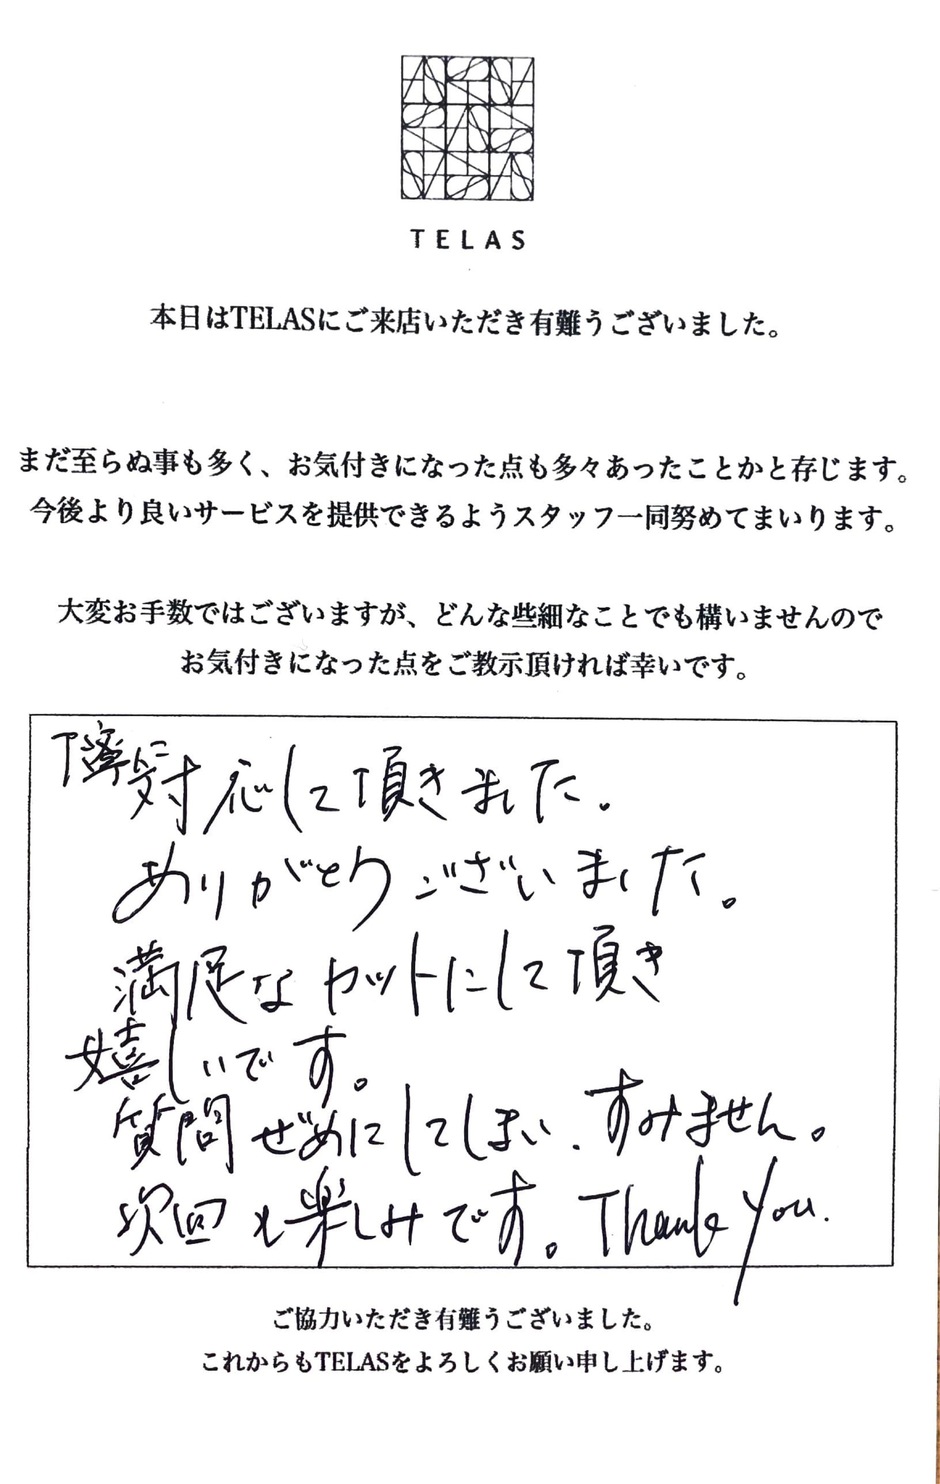 TELAS
本日はTELASにご来店いただき有難うございました。
まだ至らぬ事も多く、お気付きになった点も多々あったことかと存じます。
今後より良いサービスを提供できるようスタッフ一同努めてまいります。
大変お手数ではございますが、どんな些細なことでも構いませんので
お気付きになった点をご教示頂ければ幸いです。
丁寧に対応して頂きました。
ありがとうございました。
満足なカットにして頂き
嬉しいです。
質問ぜめにしてしまい、すみません。
次回も楽しみです。Thank you.
ご協力いただき有難うございました。
これからもTELASをよろしくお願い申し上げます。